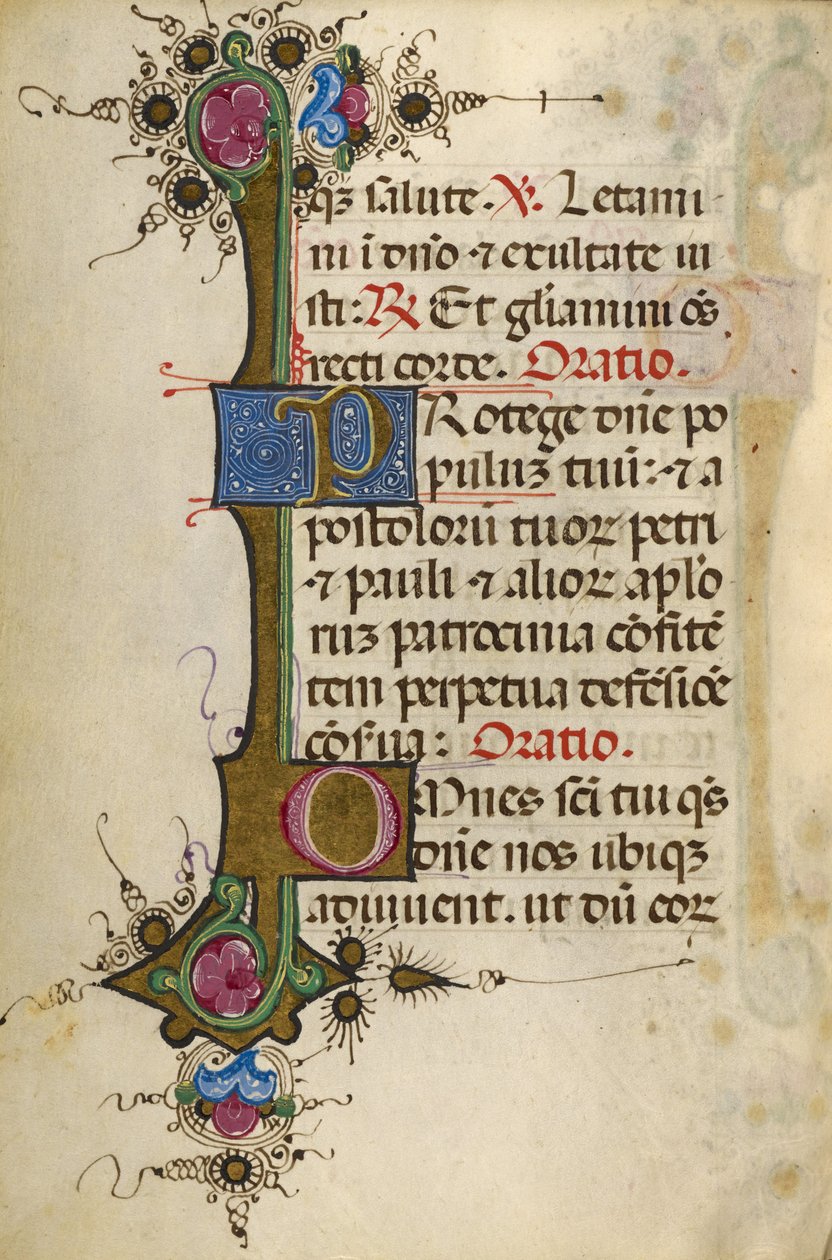 qꝫ salute. ℣. Letami
ni ī dn̄o ⁊ exultate iu
sti: ℟ Et gl̄iamini oēs
recti corde. Oratio.
PRotege dn̄e po
pulūꝫ tuū: ⁊ a
postolorū tuoꝝ petri
⁊ pauli ⁊ alioꝝ apl̄o
ruꝫ patrocinia cōfitē
tem perpetua defēsiōe
cōs̄ua: Oratio.
OMnes sc̄i tui qs̄
dn̄e nos ubiqꝫ
adiuuent. ut dū eoꝝ